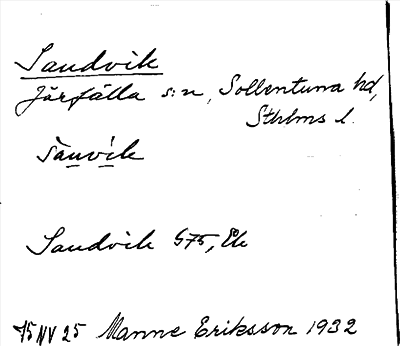 Sandvik
Järfälla s:n, Sollentuna hd,
Sthlms l.
sanvik
Sandvik 575, Ek
Manne Eriksson 1932